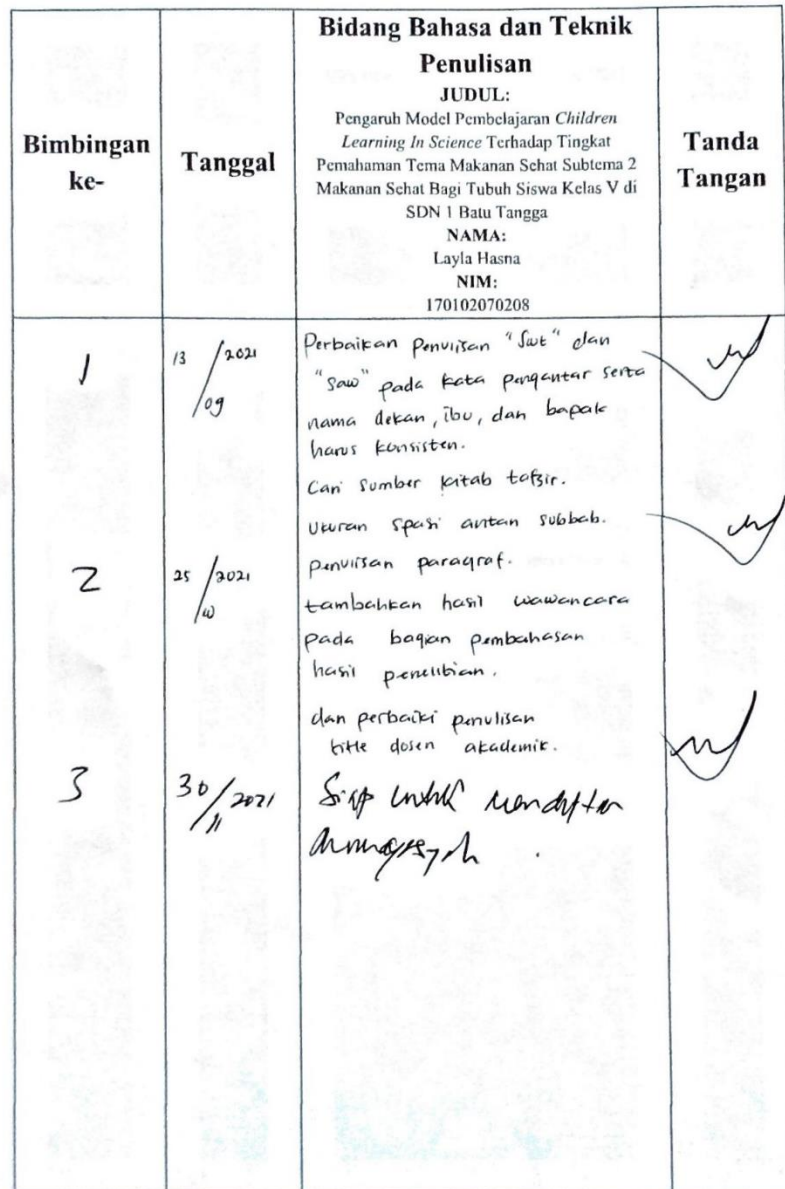 Bimbingan
ke-
Tanggal
Bidang Bahasa dan Teknik
Penulisan
JUDUL:
Pengaruh Model Pembelajaran Children
Learning In Science Terhadap Tingkat
Pemahaman Tema Makanan Sehat Subtema 2
Makanan Sehat Bagi Tubuh Siswa Kelas V di
SDN 1 Batu Tangga
NAMA:
Layla Hasna
NIM:
170102070208
Tanda
Tangan
1
13/09 2021
Perbaikan penulisan "Swt" dan
"Saw" pada kata pengantar serta
nama dekan, ibu, dan bapak
harus konsisten.
Cari sumber kitab tafsir.
Ukuran spasi antar subbab.
2
25/10 2021
penulisan paragraf.
tambahkan hasil wawancara
pada bagian pembahasan
hasil penelitian.
dan perbaiki penulisan
title dosen akademik.
3
30/11 2021
Siap untuk mendaftar